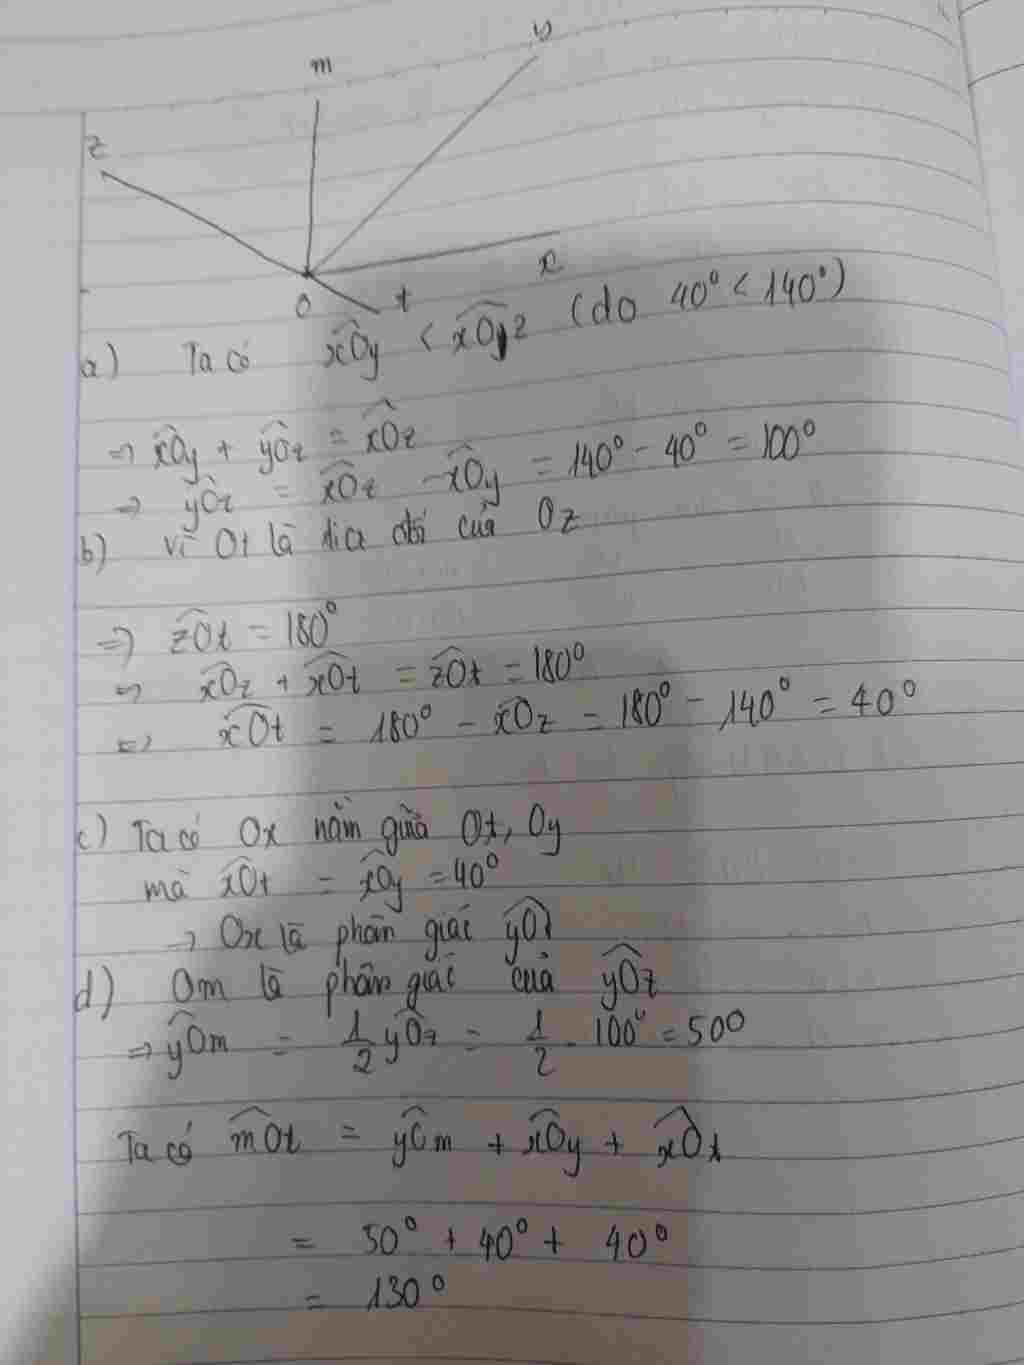 m
y
z
x
O
t
a) Ta có xOy < xOyz (do 40° < 140°)
=> xOy + yOz = xOz
=> yOz = xOz - xOy = 140° - 40° = 100°
b) Vì Ot là tia đối của Oz
=> zOt = 180°
=> xOz + xOt = zOt = 180°
=> xOt = 180° - xOz = 180° - 140° = 40°
c) Ta có Ox nằm giữa Ot, Oy
mà xOt = xOy = 40°
=> Ox là phân giác yOt
d) Om là phân giác của yOz
=> yOm = 1/2 yOz = 1/2 . 100° = 50°
Ta có mOt = yOm + xOy + xOt
= 50° + 40° + 40°
= 130°